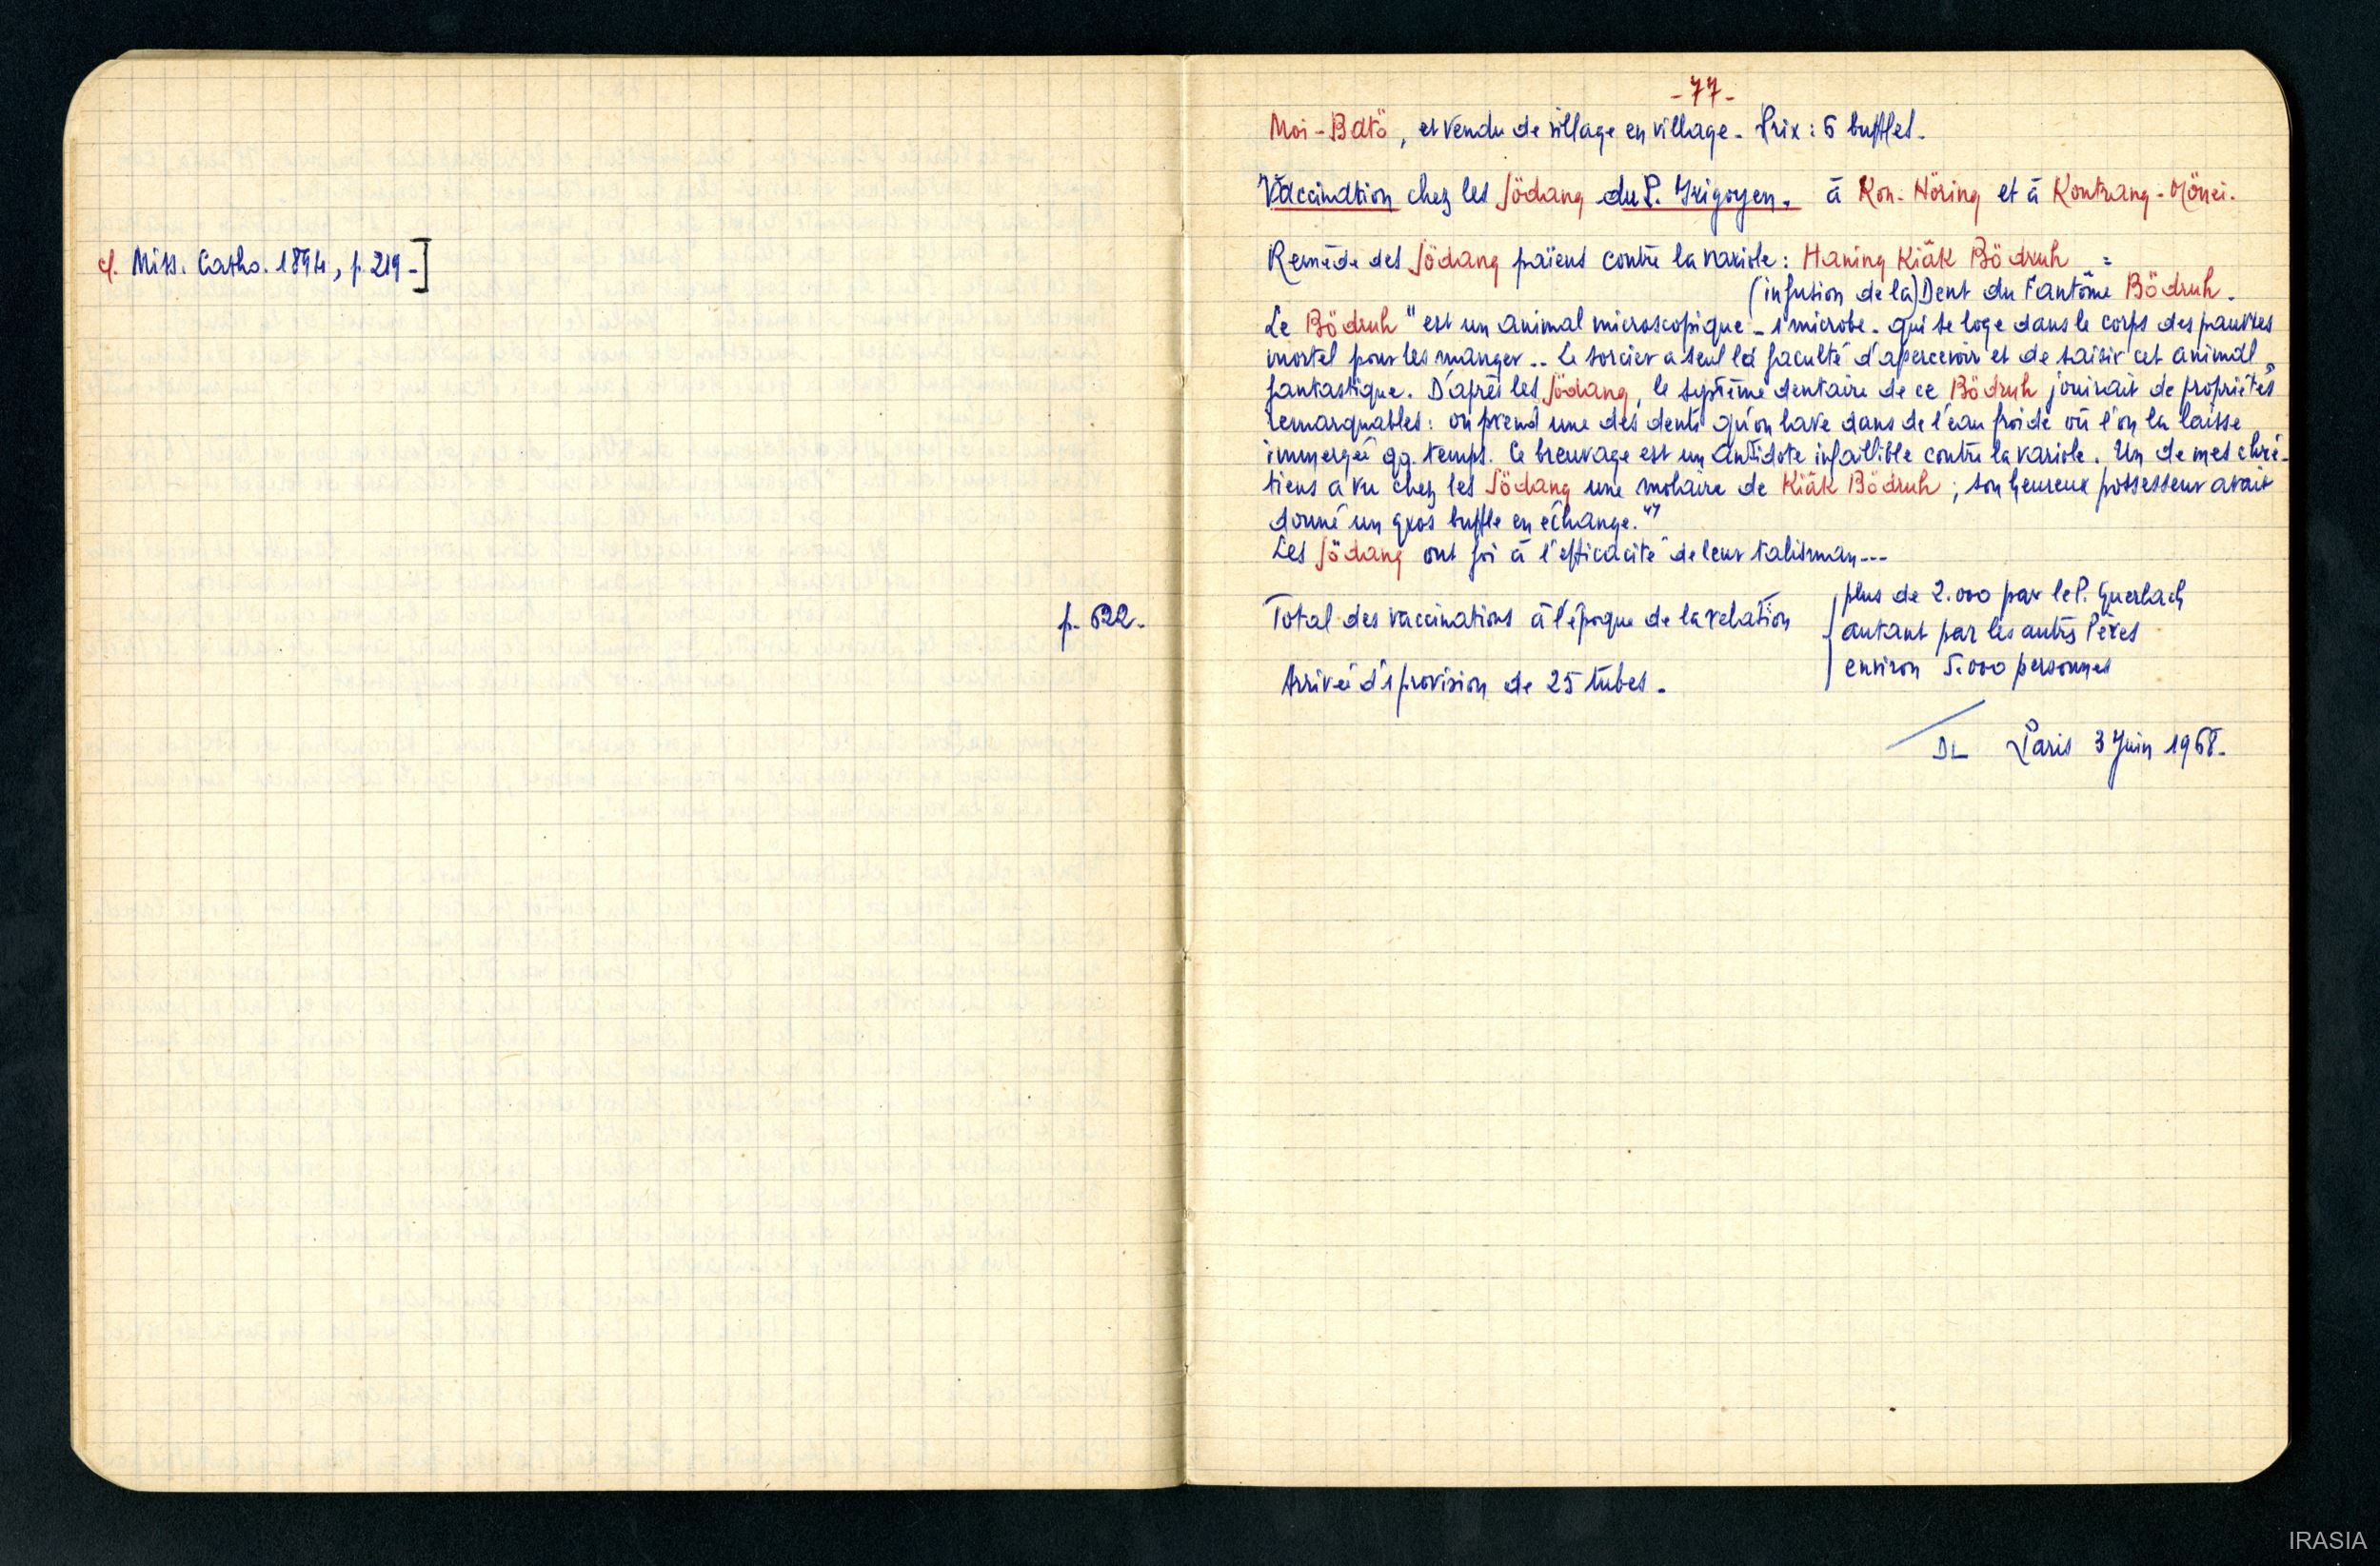 cf. Miss. Catho. 1894, p. 219-]
p. 622.
-77-
Moi-Batö, est vendu de village en village. Prix : 6 buffles.
Vaccination chez les Södang du P. Irigoyen. à Kon-Höring et à Kontrang-Mönei.
Remède des Södang païens contre la variole : Haning Kiăk Bödruh =
(infusion de la) Dent du Fantôme Bödruh.
Le Bödruh "est un animal microscopique - 1 microbe - qui se loge dans le corps des pauvres
mortel pour les manger .. Le sorcier a seul la faculté d'apercevoir et de saisir cet animal
fantastique. D'après les Södang, le système dentaire de ce Bödruh jouirait de propriétés
remarquables : on prend une des dents qu'on lave dans de l'eau froide où l'on la laisse
immergée qq. temps. Ce breuvage est un antidote infaillible contre la variole. Un de mes chré-
tiens a vu chez les Södang une molaire de Kiăk Bödruh ; son heureux possesseur avait
donné un gros buffle en échange."
Les Södang ont foi à l'efficacité de leur talisman---
Total des vaccinations à l'époque de la relation
plus de 2.000 par le P. Guerlach
autant par les autres Pères
environ 5.000 personnes
Arrivée d'1 provision de 25 tubes.
DL Paris 3 Juin 1968.
IRASIA